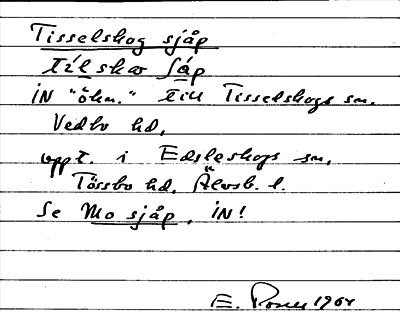 Tisselskog sjåp
tílskoo ʃáp
IN "ökn." till Tisselskogs sn.
Vedbo hd,
uppt. i Edsleskogs sn,
Tössbo hd, Älvsb. l.
Se Mo sjåp, IN!
E. 1964